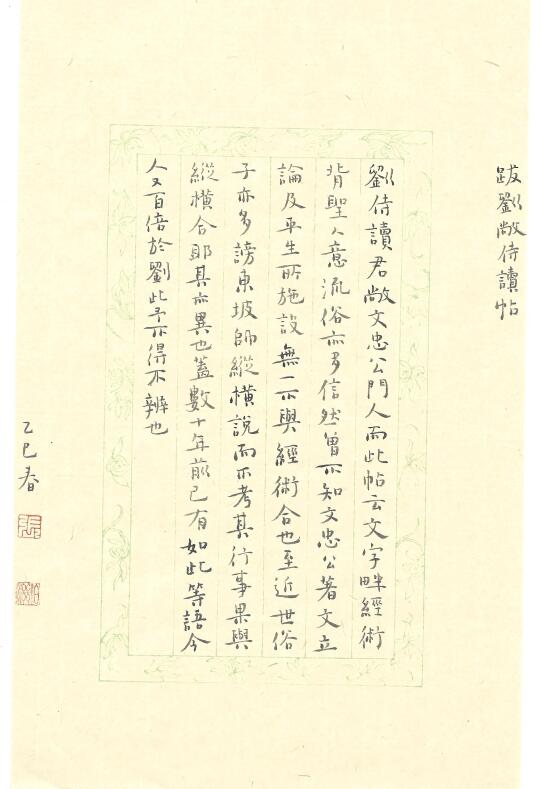 跋劉敞侍讀帖
劉侍讀君敞文忠公門人而此帖云文字畔經術
背聖人意流俗亦多信然曾不知文忠公著文立
論及平生所施設無一不與經術合也至近世俗
子亦多謗東坡師縱橫說而不考其行事果與
縱橫合耶其亦異也蓋數十年前已有如此等語今
人又百倍於劉此予不得不辨也
乙巳春